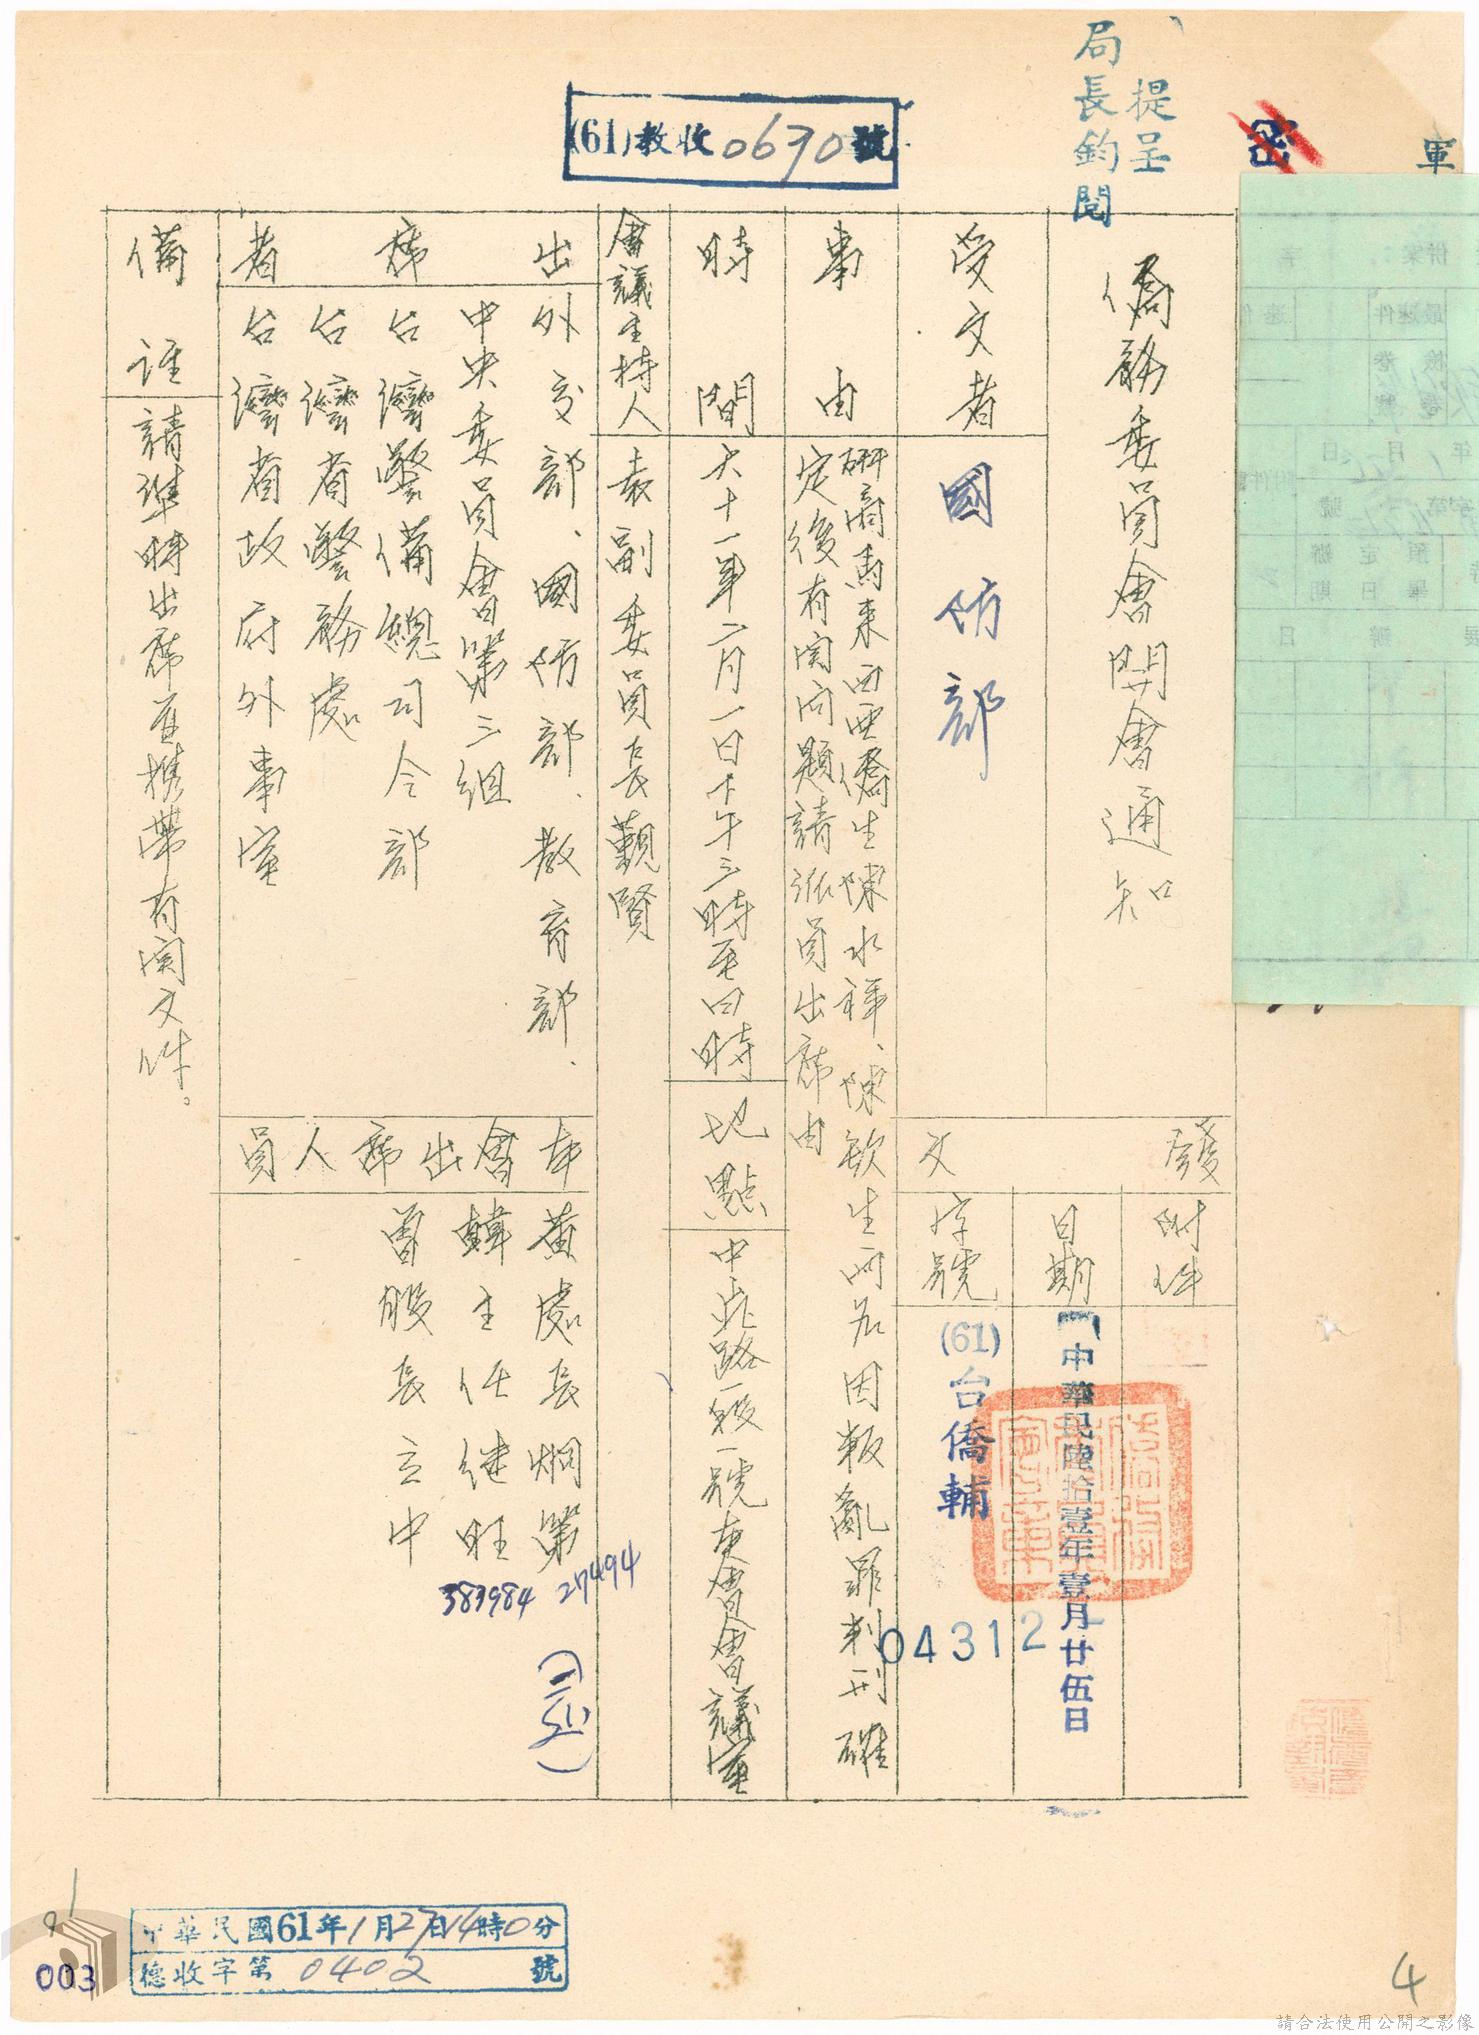 提呈
局長鈞閱
密
軍
(61)教收0670號
僑務委員會開會通知
受文者
國防部
發文
附件
日期
中華民陸拾壹年壹月廿伍日
字號
(61)台僑輔
04312
事由
研商馬來西亞僑生陳水祥、陳欽生两名因叛亂罪判刑確
定後有関问題請派員出席由
時間
六十一年二月一日下午三時至四時
地點
中北路一段一號本會會議室
會議主持人
袁副委員長覲賢
出席者
外交部、國防部、教育部、
中央委員會第三組
台灣警備總司令部
台灣省警務處
台灣省政府外事室
本會出席人員
黃處長炯第
韓主任继旺
曾股長立中
27494
383984
備註
請準時出席並携帶有関文件。
中華民國61年1月27日14時0分
德收字第0402號
003
4
請合法使用公開之影像